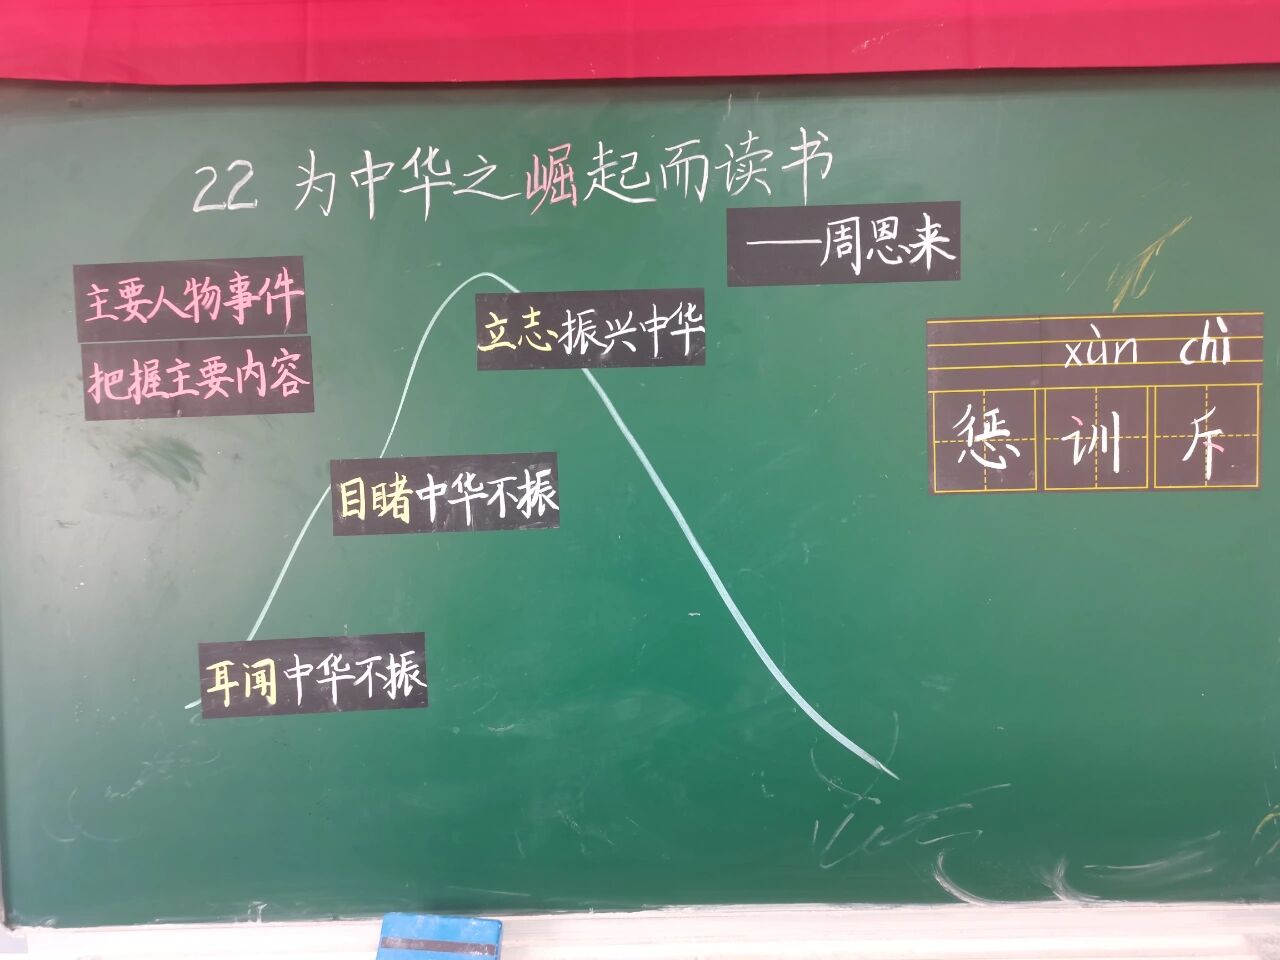 22 为中华之崛起而读书
——周恩来
主要人物事件
把握主要内容
立志振兴中华
目睹中华不振
耳闻中华不振
xùn chì
惩训斥